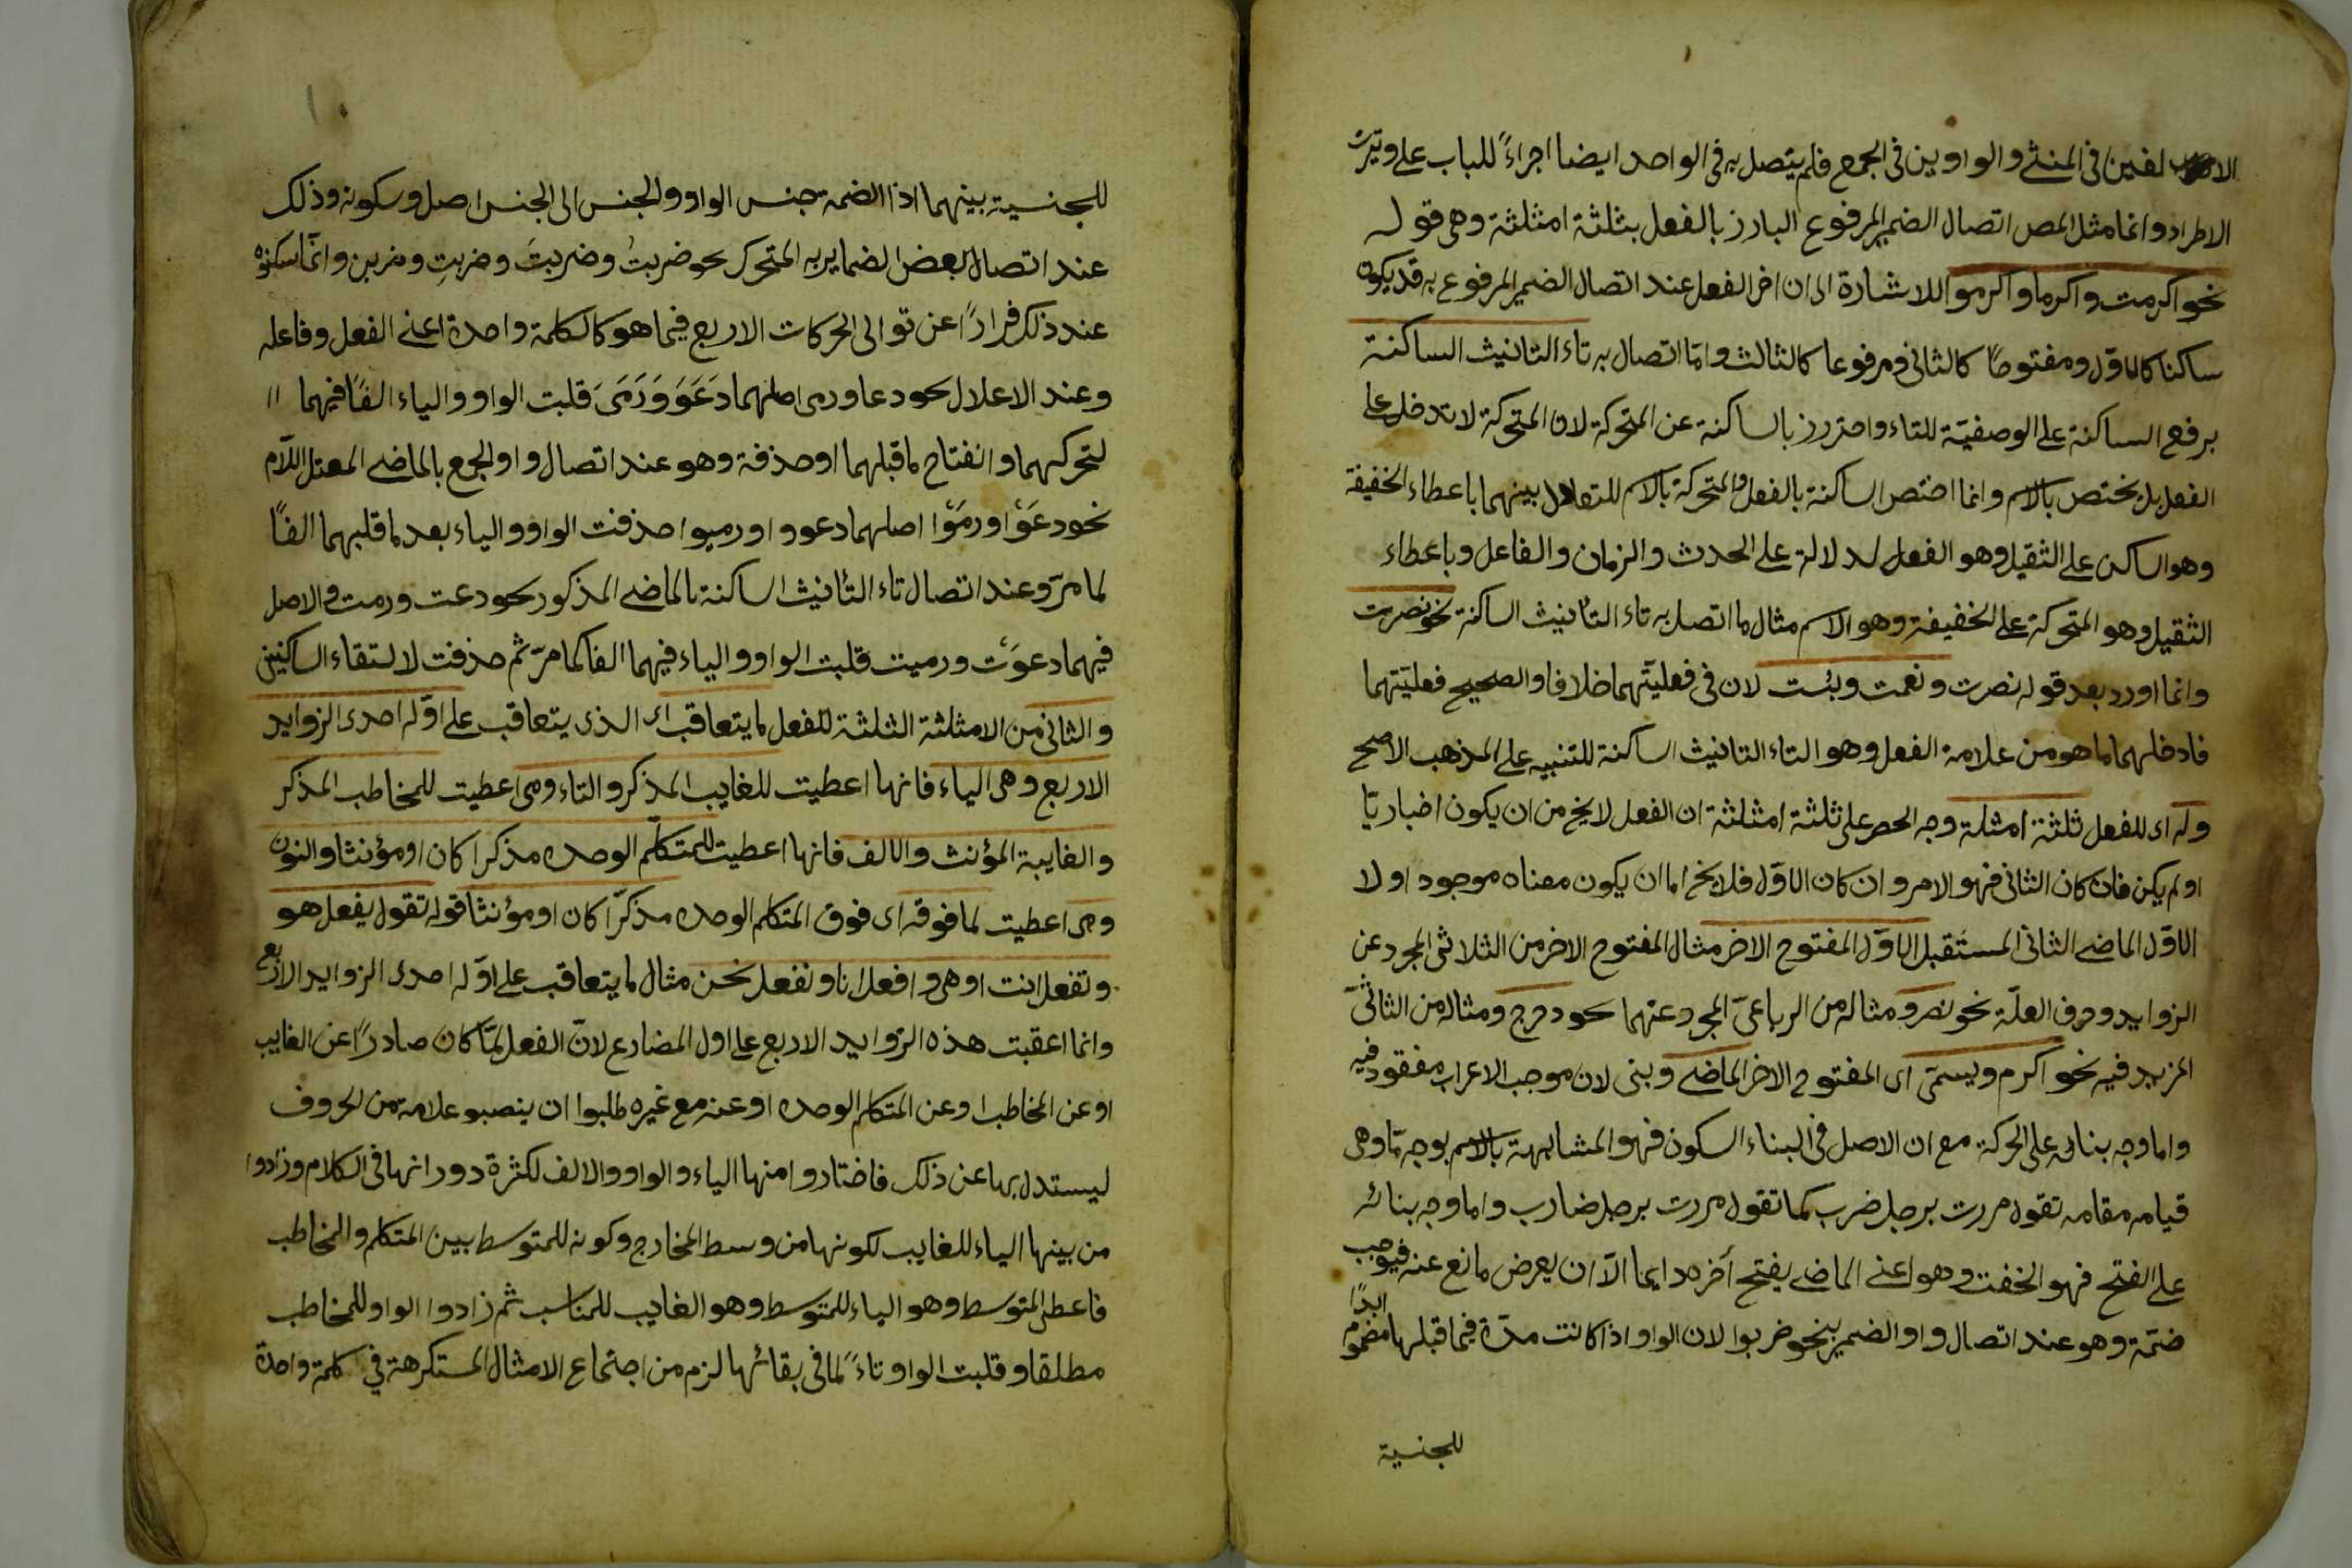 الالفين في المثنى والواوين في الجمع فلم يتصل به في الواحد ايضا اجراءً للباب على وتيرة
الاطراد وانما مثل المص اتصال الضمير المرفوع البارز بالفعل بثلثة امثلثة وهى قوله
نحو اكرمت واكرما واكرموا للاشارة الى ان اخر الفعل عند اتصال الضمير المرفوع به قد يكون
ساكنا كالاوّل ومفتوحًا كالثانى ومرفوعا كالثالث وامّا اتصال به تاء التانيث الساكنة
برفع الساكنة على الوصفيّة للتاء واحترز بالساكنة عن المتحركة لان المتحركة لا تدخل على
الفعل بل يختص بالاسم وانما اختص الساكنة بالفعل والمتحركة بالاسم للتعادل بينهما باعطاء الخفيفة
وهو الساكن على الثقيل وهو الفعل لدلالة على الحدث والزمان والفاعل وباعطاء
الثقيل وهو المتحركة على الخفيفة وهو الاسم مثال ما اتصل به تاء التأنيث الساكنة نحو نصرت
وانما اورد بعد قوله نصرت ونعمت وبئست لان في فعليّتهما خلافا والصحيح فعليّتهما
فادخلهما ما هو من علامة الفعل وهو التاء التانيث الساكنة للتنبيه على المذهب الاصح
وله اى للفعل ثلثة امثلة وجه الحصر على ثلثة امثلثة ان الفعل لا يخ من ان يكون اخباريّا
او لم يكن فان كان الثانى فهو الامر وان كان الاوّل فلا يخ اما ان يكون معناه موجود او لا
الاوّل الماضى الثانى المستقبل الاوّل المفتوح الاخر مثال المفتوح الاخر من الثلاثى المجرد عن
الزوايد وحرف العلّة نحو نصر ومثاله من الرباعىّ المجرد عنهما نحو دحرج ومثاله من الثلاثىّ
المزيد فيه نحو اكرم ويسمّى اى المفتوح الاخر الماضى وبنى لان موجب الاعراب مفقود فيه
واما وجه بنائه على الحركة مع ان الاصل في البناء السكون فهو المشابهة بالاسم بوجه مّا وهى
قيامه مقامه تقول مررت برجل ضرب كما تقول مررت برجل ضارب واما وجه بنائه
على الفتح فهو الخفت وهو اعنى الماضى يفتح آخره دايما الّا ان يعرض مانع عنه فيوجب
ضمّة وهو عند اتصال واو الضمير بنحو ضربوا لان الواو اذا كانت مدّة فما قبلها مضموم ابدًا
للجنسية
١٠
للجنسية بينهما اذ الضمة جنس الواو والجنس الى الجنس اصل وسكونه وذلك
عند اتصال بعض الضماير به المتحرك نحو ضربتُ وضربتَ وضربتِ وضربن وانّما سكنوه
عند ذلك فرارًا عن توالى الحركات الاربع فيما هو كالكلمة واحدة اعنى الفعل وفاعله
وعند الاعلال نحو دعا ورمى اصلهما دَعَوَ وَرَمَىَ قلبت الواو والياء الفًا فيهما
لتحركهما وانفتاح ما قبلهما او حذفة وهو عند اتصال واو الجمع بالماضى المعتل اللّام
نحو دعَوْا ورمَوْا اصلهما دعووا ورميوا حذفت الواو والياء بعد ما قلبهما الفًا
لما مرّ وعند اتصال تاء التأنيث الساكنة بالماضى المذكور نحو دعت ورمت والاصل
فيهما دعوَت ورميت قلبت الواو والياء فيهما الفا كما مرّ ثم حذفت لالتقاء الساكنين
والثانى من الامثلثة الثلثة للفعل ما يتعاقب اى الذى يتعاقب على اوّله احدى الزوايد
الاربع وهى الياء فانها اعطيت للغايب المذكر والتاء وهى اعطيت للمخاطب المذكر
والغايبة المؤنث والالف فانها اعطيت للمتكلّم الوحده مذكرا كان او مؤنثا والنون
وهى اعطيت لما فوقه اى فوق المتكلم الوحده مذكّرا كان او مؤنثا قوله تقول يفعل هو
وتفعل انت او هى وافعل انا ونفعل نحن مثال ما يتعاقب على اوّله احدى الزوايد الاربع
وانما اعقبت هذه الزوايد الاربع على اول المضارع لانّ الفعل لمّا كان صادرًا عن الغايب
او عن المخاطب او عن المتكلم الوحده او عنه مع غيره طلبوا ان ينصبو علامة من الحروف
ليستدل بها عن ذلك فاختاروا منها الياء والواو والالف لكثرة دورانها في الكلام وزادوا
من بينها الياء للغايب لكونها من وسط المخارج وكونه للمتوسط بين المتكلم والمخاطب
فاعطى المتوسط وهو الياء للمتوسط وهو الغايب للمناسب ثم زادوا الواو للمخاطب
مطلقا وقلبت الواو تاءً لما في بقائها لزم من اجتماع الامثال المستكرهة في كلمة واحدة